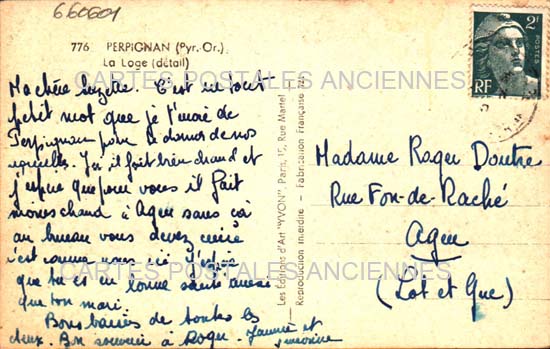 660601
776 PERPIGNAN (Pyr.-Or.)
La Loge (détail)
CARTES POSTALES ANCIENNES
Ma chère Suzette. C'est un tout
petit mot que je t'envoie de
Perpignan pour te donner de nos
nouvelles. Ici il fait bien chaud et
j'espère que pour vous il fait
moins chaud à Agen sans ça
au bureau vous devez cuire
c'est comme nous ici. J'espère
que tu es en bonne santé ainsi
que ton mari.
Bons baisers de toutes les
deux. Bon souvenir à Roger. Jeanne et
Simonne
Les Editions d'Art "YVON", Paris, 15, Rue Martel
Reproduction interdite - Fabrication Française
2F
POSTES
RF
Madame Roger
Rue Fon-de-Raché
Agen
(Lot et Gne)
CARTES POSTALES ANCIENNES